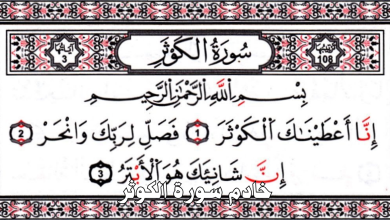 آياتها 3 سُورَةُ الكَوْثَرِ ترتيبها 108
بِسْمِ اللَّهِ الرَّحْمَٰنِ الرَّحِيمِ
إِنَّا أَعْطَيْنَاكَ الْكَوْثَرَ 1 فَصَلِّ لِرَبِّكَ وَانْحَرْ 2
إِنَّ شَانِئَكَ هُوَ الْأَبْتَرُ 3
خادم سورة الكوثر